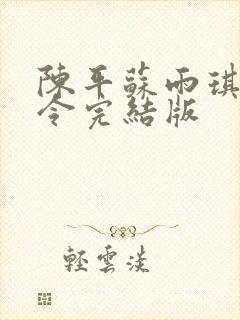 陳平蘇雨琪
令完結版
輕雲淡